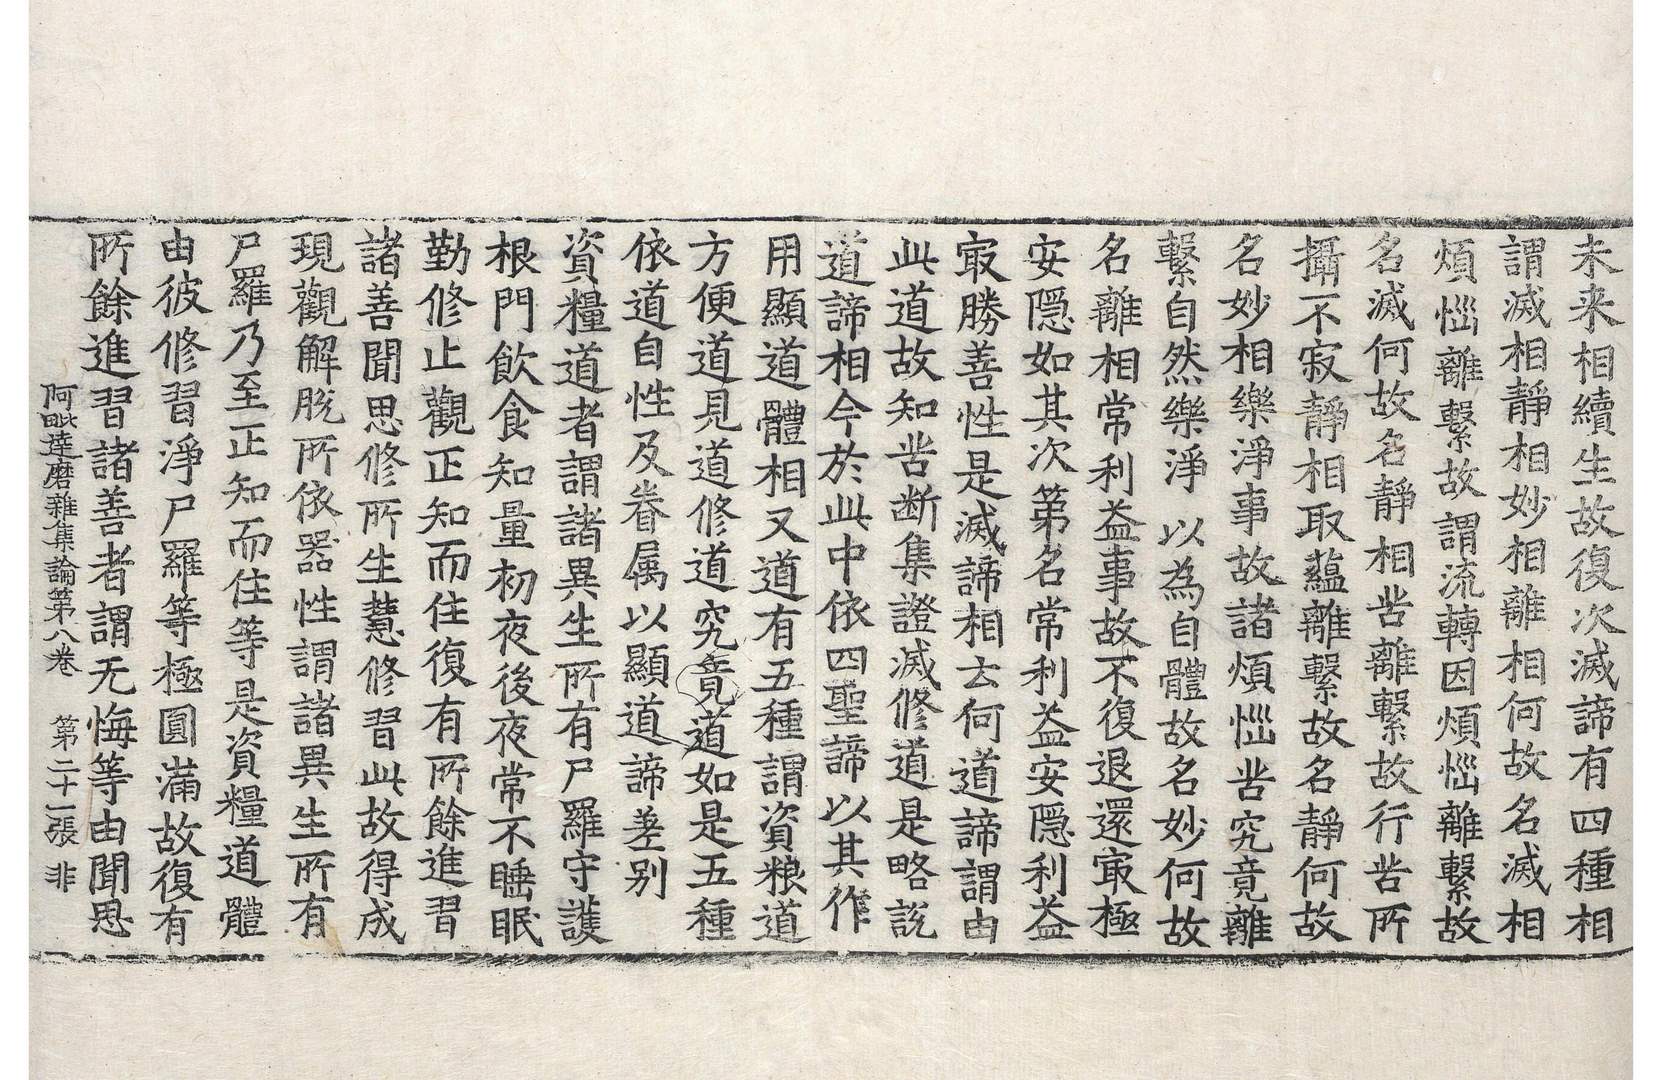 未来相續生故復次滅諦有四種相
謂滅相靜相妙相離相何故名滅相
煩惱離繫故謂流轉因煩惱離繫故
名滅何故名靜相苦離繫故行苦所
攝不寂靜相取蘊離繫故名靜何故
名妙相樂淨事故諸煩惱苦究竟離
繫自然樂淨以為自體故名妙何故
名離相常利益事故不復退還㝡極
安隱如其次第名常利益安隱利益
㝡勝善性是滅諦相去何道諦謂由
此道故知苦断集證滅修道是略說
道諦相今於此中依四聖諦以其作
用顯道體相又道有五種謂資粮道
方便道見道修道究竟道如是五種
依道自性及眷属以顯道諦差别
資糧道者謂諸異生所有尸羅守護
根門飲食知量初夜後夜常不睡眠
勤修止觀正知而住復有所餘進習
諸善聞思修所生慧修習此故得成
現觀解脫所依器性謂諸異生所有
尸羅乃至正知而住等是資糧道體
由彼修習淨尸羅等極圓滿故復有
所餘進習諸善者謂无悔等由聞思
阿毗達磨雜集論第八卷　第二十一張　非